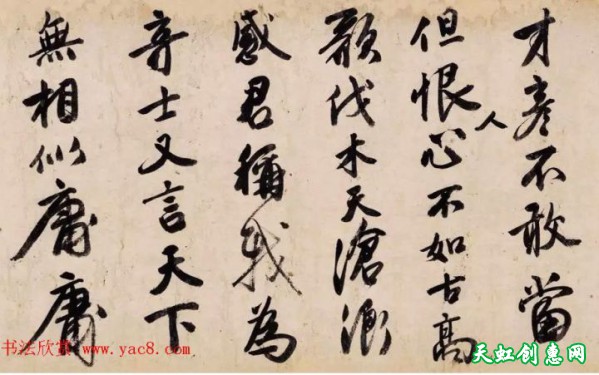 才彥不敢當
但恨人心不如古高
歌伐木天滄浪
感君稱我為
奇士又言天下
無相似庸庸
书法欣赏www.yac8.com
天虹创惠网